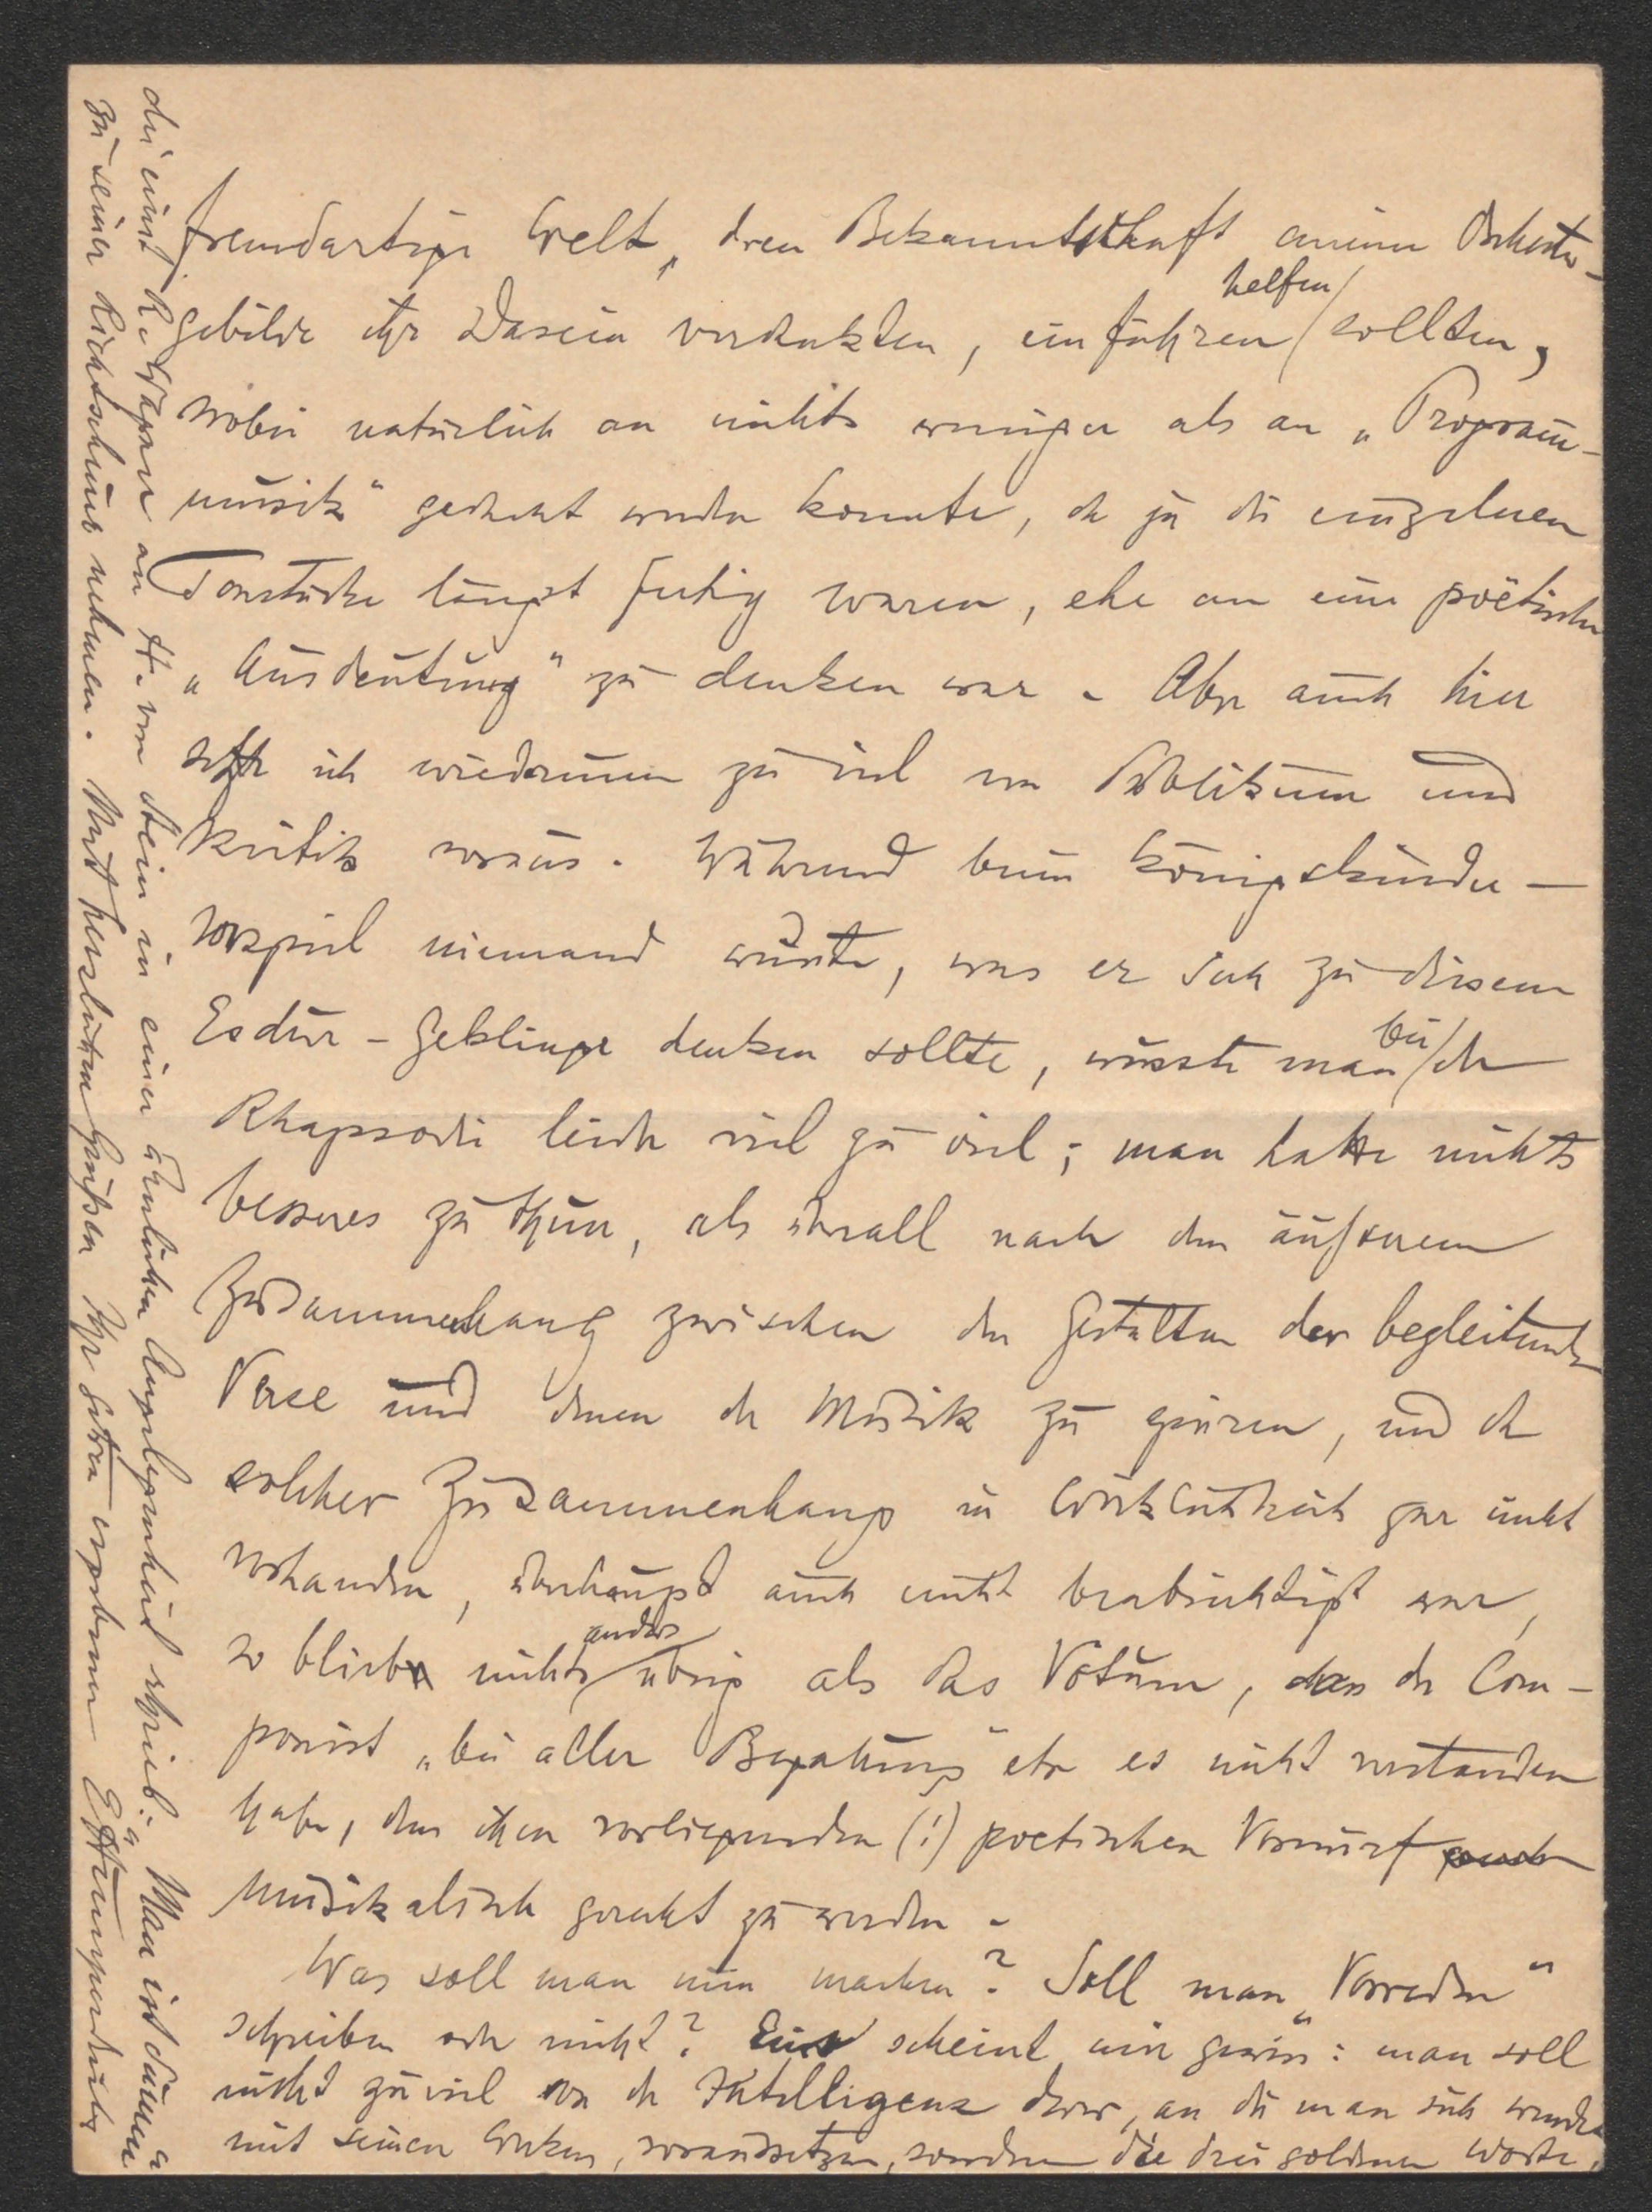 fremdartige Welt, deren Bekanntschaft meine Orchester-
gebilde ihr Dasein verdankten, einführen helfen sollten,
wobei natürlich an nichts weniger als an „Programm-
musik" gedacht werden konnte, da ja die einzelnen
Tonstücke längst fertig waren, ehe an eine poëtische
„Ausdeutung" zu denken war. Aber auch hier
setzte ich wiederum zu viel vom Publikum und
Kritik voraus. Während beim Königskinder-
vorspiel niemand wußte, was er sich zu diesem
Esdur-Geklinge denken sollte, wusste man bei der
Rhapsodie leider viel zu viel; man hatte nichts
besseres zu thun, als überall nach dem äußeren
Zusammenhang zwischen den Gestalten der begleitenden
Verse und denen der Musik zu spüren, und da
solcher Zusammenhang in Wirklichkeit gar nicht
vorhanden, überhaupt auch nicht beabsichtigt war,
so blieb nichts anders übrig als das Votum, dass der Com-
ponist „bei aller Begabung" etc es nicht verstanden
habe, dem ihm vorliegenden (!) poetischen Vorwurf
musikalisch gerecht zu werden.
Was soll man nun machen? Soll man „Vorreden"
schreiben oder nicht? Eins scheint mir gewiss: man soll
nicht zuviel von der Intelligenz derer, an die man sich wendet
mit seinen Werken, voraussetzen, sondern die drei goldenen Worte,
die einst R. Wagner an H. von Stein in einer ähnlichen Angelegenheit schrieb: „Man ist dumm"
zu seiner Richtschnur nehmen. Mit herzlichen Grüßen Ihr sehr ergebener EHumperdinck